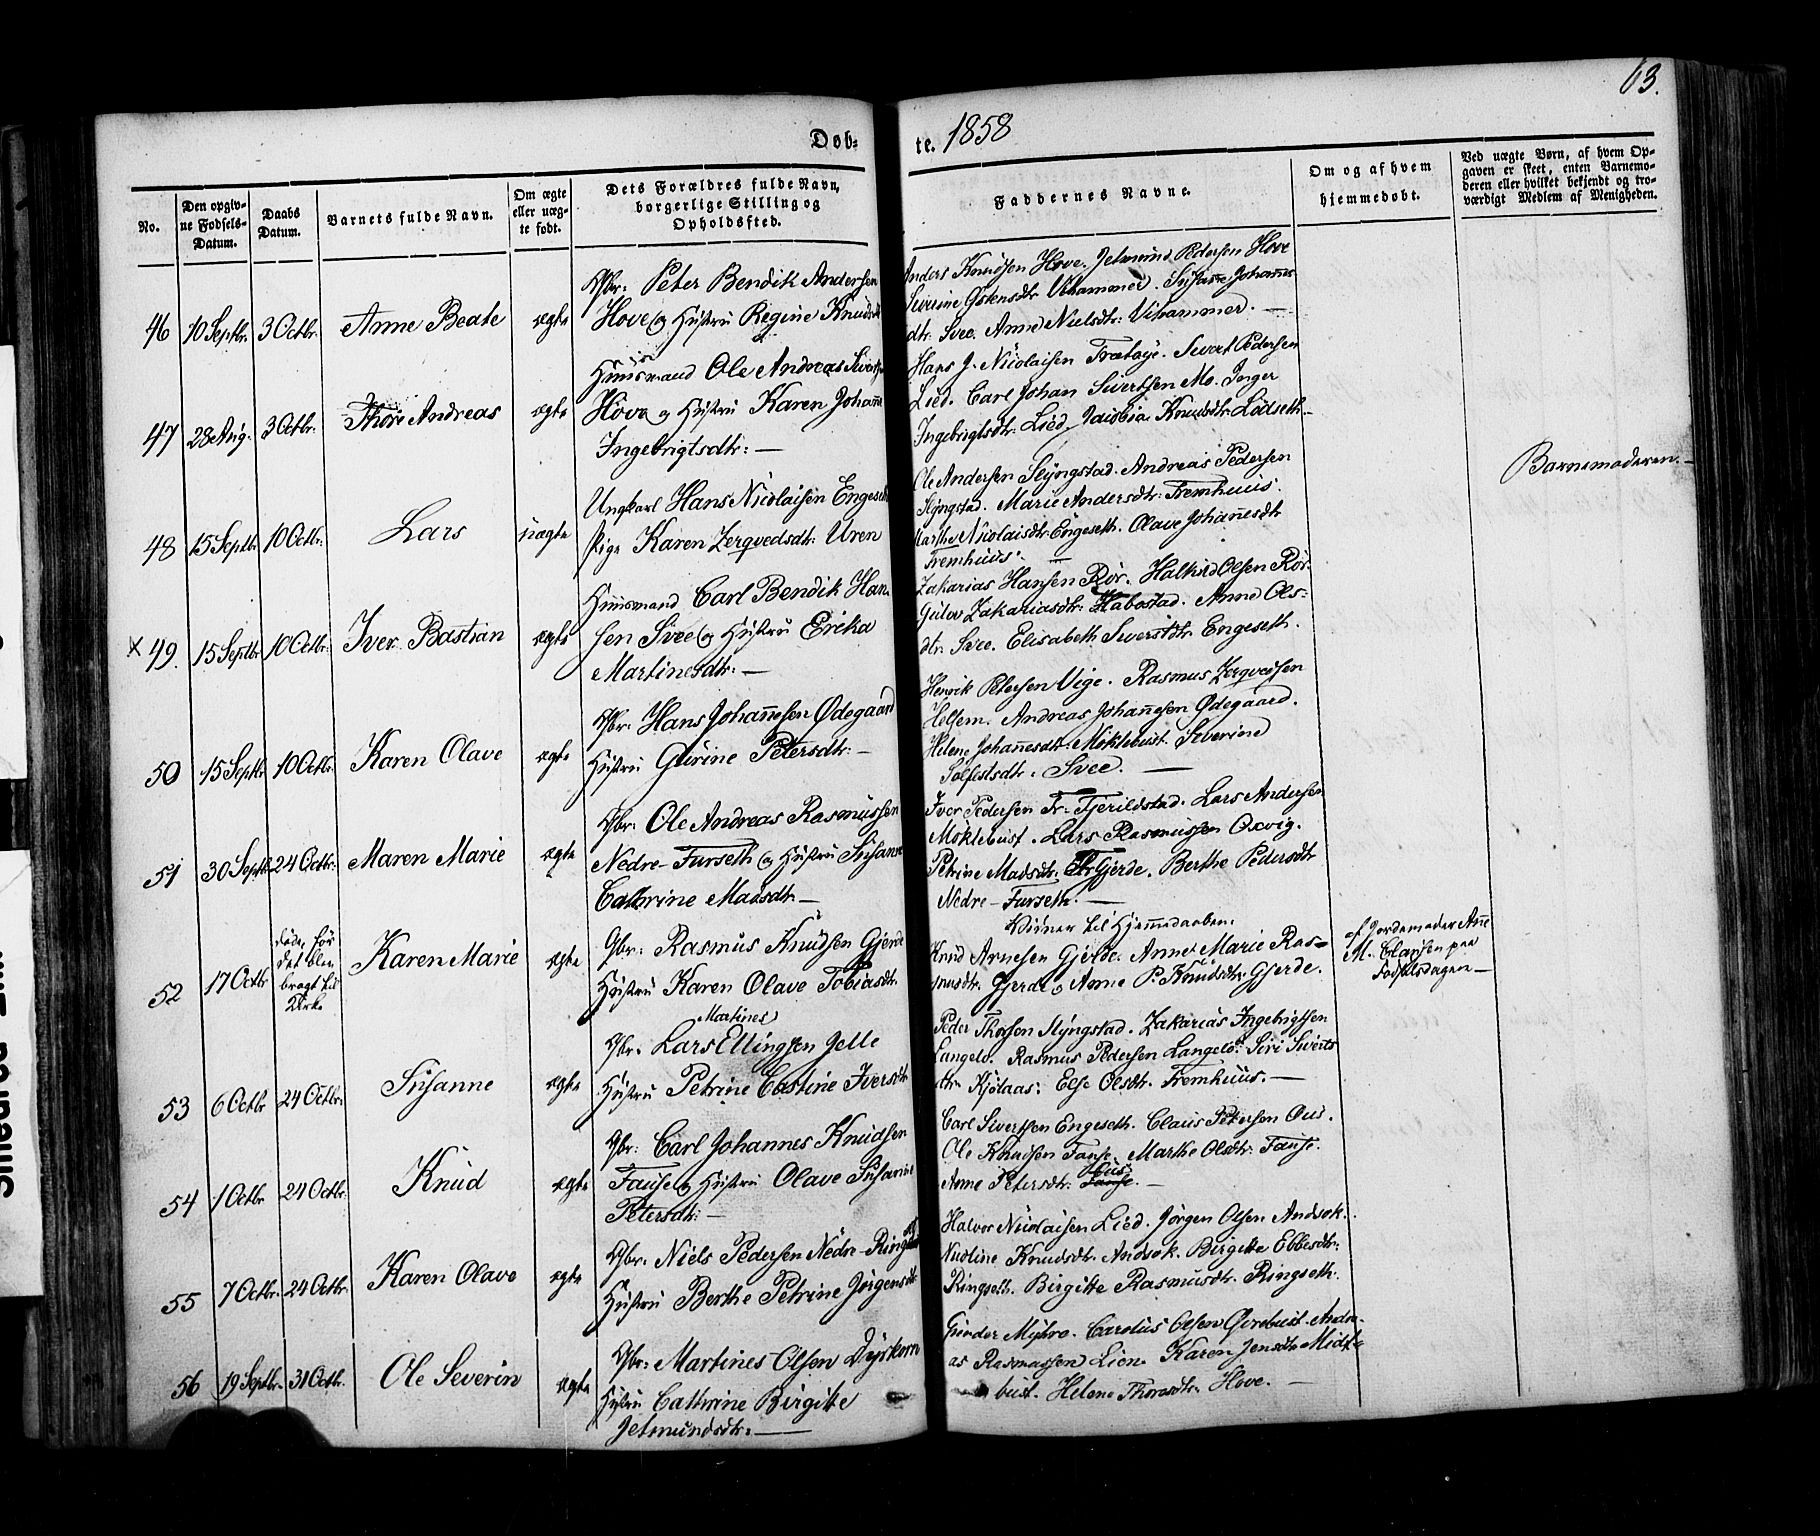 63.
Døb-
te. 1858
No.
Den opgiv-
ne Fødsels-
Datum.
Daabs
Datum.
Barnets fulde Navn.
Om ægte
eller uæg-
te født.
Dets Forældres fulde Navn,
borgerlige Stilling og
Opholdssted.
Faddernes Navne.
Om og af hvem
hjemmedøbt.
Ved uægte Børn, af hvem Op-
gaven er skeet, enten Barnemo-
deren eller hvilket bekjendt og tro-
værdigt Medlem af Menigheden.
46 10 Septbr. 3 Octbr. Anne Beate ægte
Gbr: Peter Bendik Andersen
Hove og Hustru Regine Knudsdtr
Anders Knudsen Hove. Jetmund Pedersen Hove
Severine Østensdtr Vihammer. Susanne Johannes
dtr. Svee. Anne Nielsdtr: Vihammer. —
47 28 Aug. 3 Octbr. Thore Andreas ægte
Huusmand Ole Andreas Sivertsen
Hove og Hustru Karen Johanne
Ingebrigtsdtr: —
Hans J. Nicolaisen Frætøye. Sivert Pedersen
Lied. Carl Johan Sivertsen Mo. Inger
Ingebrigtsdtr: Lied. Jacobia Knudsdtr. Lødseth
48 15 Septbr. 10 Octbr. Lars uægte
Ungkarl Hans Nicolaisen Engeseth
Pige Karen Zerqvedsdtr: Uren
Ole Andersen Slyngstad. Andreas Pedersen
Slyngstad. Marie Andersdtr: Fremhuus.
Marthe Nicolaisdtr: Engeseth. Olave Johannesdtr
Fremhuus. —
Barnemoderen. —
x 49. 15 Septbr. 10 Octbr. Iver Bastian ægte
Huusmand Carl Bendik Han
sen Svee og Hustru Ericka
Martinesdtr: —
Zakarias Hansen Rør. Halkild Olsen Rør.
Gulov Zakariasdtr: Habostad. Anne Ols-
dtr. Svee. Elisabeth Sivertsdtr. Engeseth.
50 15 Septbr 10 Octbr. Karen Olave ægte
Gbr. Hans Johannesen Ødegaard
Hustru Gurine Petersdtr: —
Henrik Petersen Vige. Rasmus Zerqvedsen
Helsem. Andreas Johannesen Ødegaard.
Helene Johannesdtr: Moklebust. Severine
Solfestsdtr. Svee. —
51 30 Septbr 24 Octbr. Maren Marie ægte
Gbr. Ole Andreas Rasmussen
Nedre-Furseth og Hustru Susanne
Cathrine Madsdtr. —
Iver Pedersen Fr: Fjerildstad. Lars Andersen
Moklebust. Lars Rasmussen Oxvig.
Petrine Madsdtr: Gjerde. Berthe Pedersdtr
Nedre-Furseth. —
52 17 Octbr døde, før
det blev
bragt til
Kirke
Karen Marie ægte
Gbr: Rasmus Knudsen Gjerde
Hustru Karen Olave Tobiasdtr.
Vidner til Hjemmedaaben.
Knud Arnesen Gjerde. Anne Marie Ras-
musdtr: Gjerde o Anne P. Knudsdtr: Gjerde.
af Jordemoder Anne
M. Clausen paa
Fødselsdagen —
53 6 Octbr 24 Octbr. Susanne ægte
Martines
Gbr. Lars Ellingsen Gelle
Hustru Petrine Castine Iversdtr
Peder Thorsen Slyngstad. Zakarias Ingebrigtsen
Langelo. Rasmus Pedersen Langelo. Siri Siverts
dtr. Kjølaas: Else Olsdtr. Fremhuus. —
54 1 Octbr 24 Octbr. Knud ægte
Gbr: Carl Johannes Knudsen
Fause og Hustru Olave Susanne
Petersdtr: —
Carl Sivertsen Engeseth. Claus Petersen Ous.
Ole Knudsen Fause. Marthe Olsdtr. Fause.
Anne Petersdtr: Fause. Ous —
55 7 Octbr. 24 Octbr. Karen Olave ægte
Gbr. Niels Pedersen Nedre-Ringseth
Hustru Berthe Petrine Jørgensdtr
Halvor Nicolaisen Lied. Jørgen Olsen Andsok.
Nicoline Knudsdtr. Andsok. Birgitte Ebbesdtr:
Ringseth. Birgitte Rasmusdtr. Ringseth.
56 19 Septbr. 31 Octbr. Ole Severin ægte
Gbr: Martines Olsen Dyrkorn
Hustru Cathrine Birgitte
Jetmundsdtr: —
Gunder Myhro. Carolus Olsen Gverbust. Andre-
as Rasmussen Lien. Karen Jensdtr. Midt-
bust. Helene Thorasdtr. Hove. —